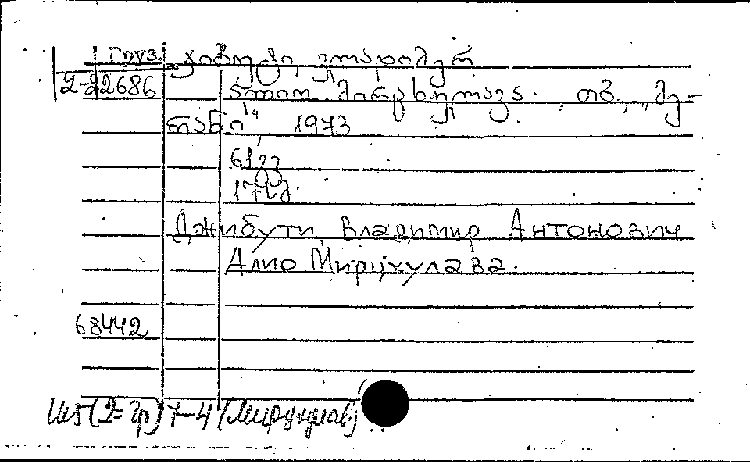 Груз. ჯიბუტი, ვლადიმერ
2-22686 ალიო მირცხულავა. თბ., „მე-
რანი“, 1973
61 გვ
Джибути, Владимир Антонович
Алио Мирцхулава.
68442
Ш5(2=Гр)7-4 (Мирцхулава)